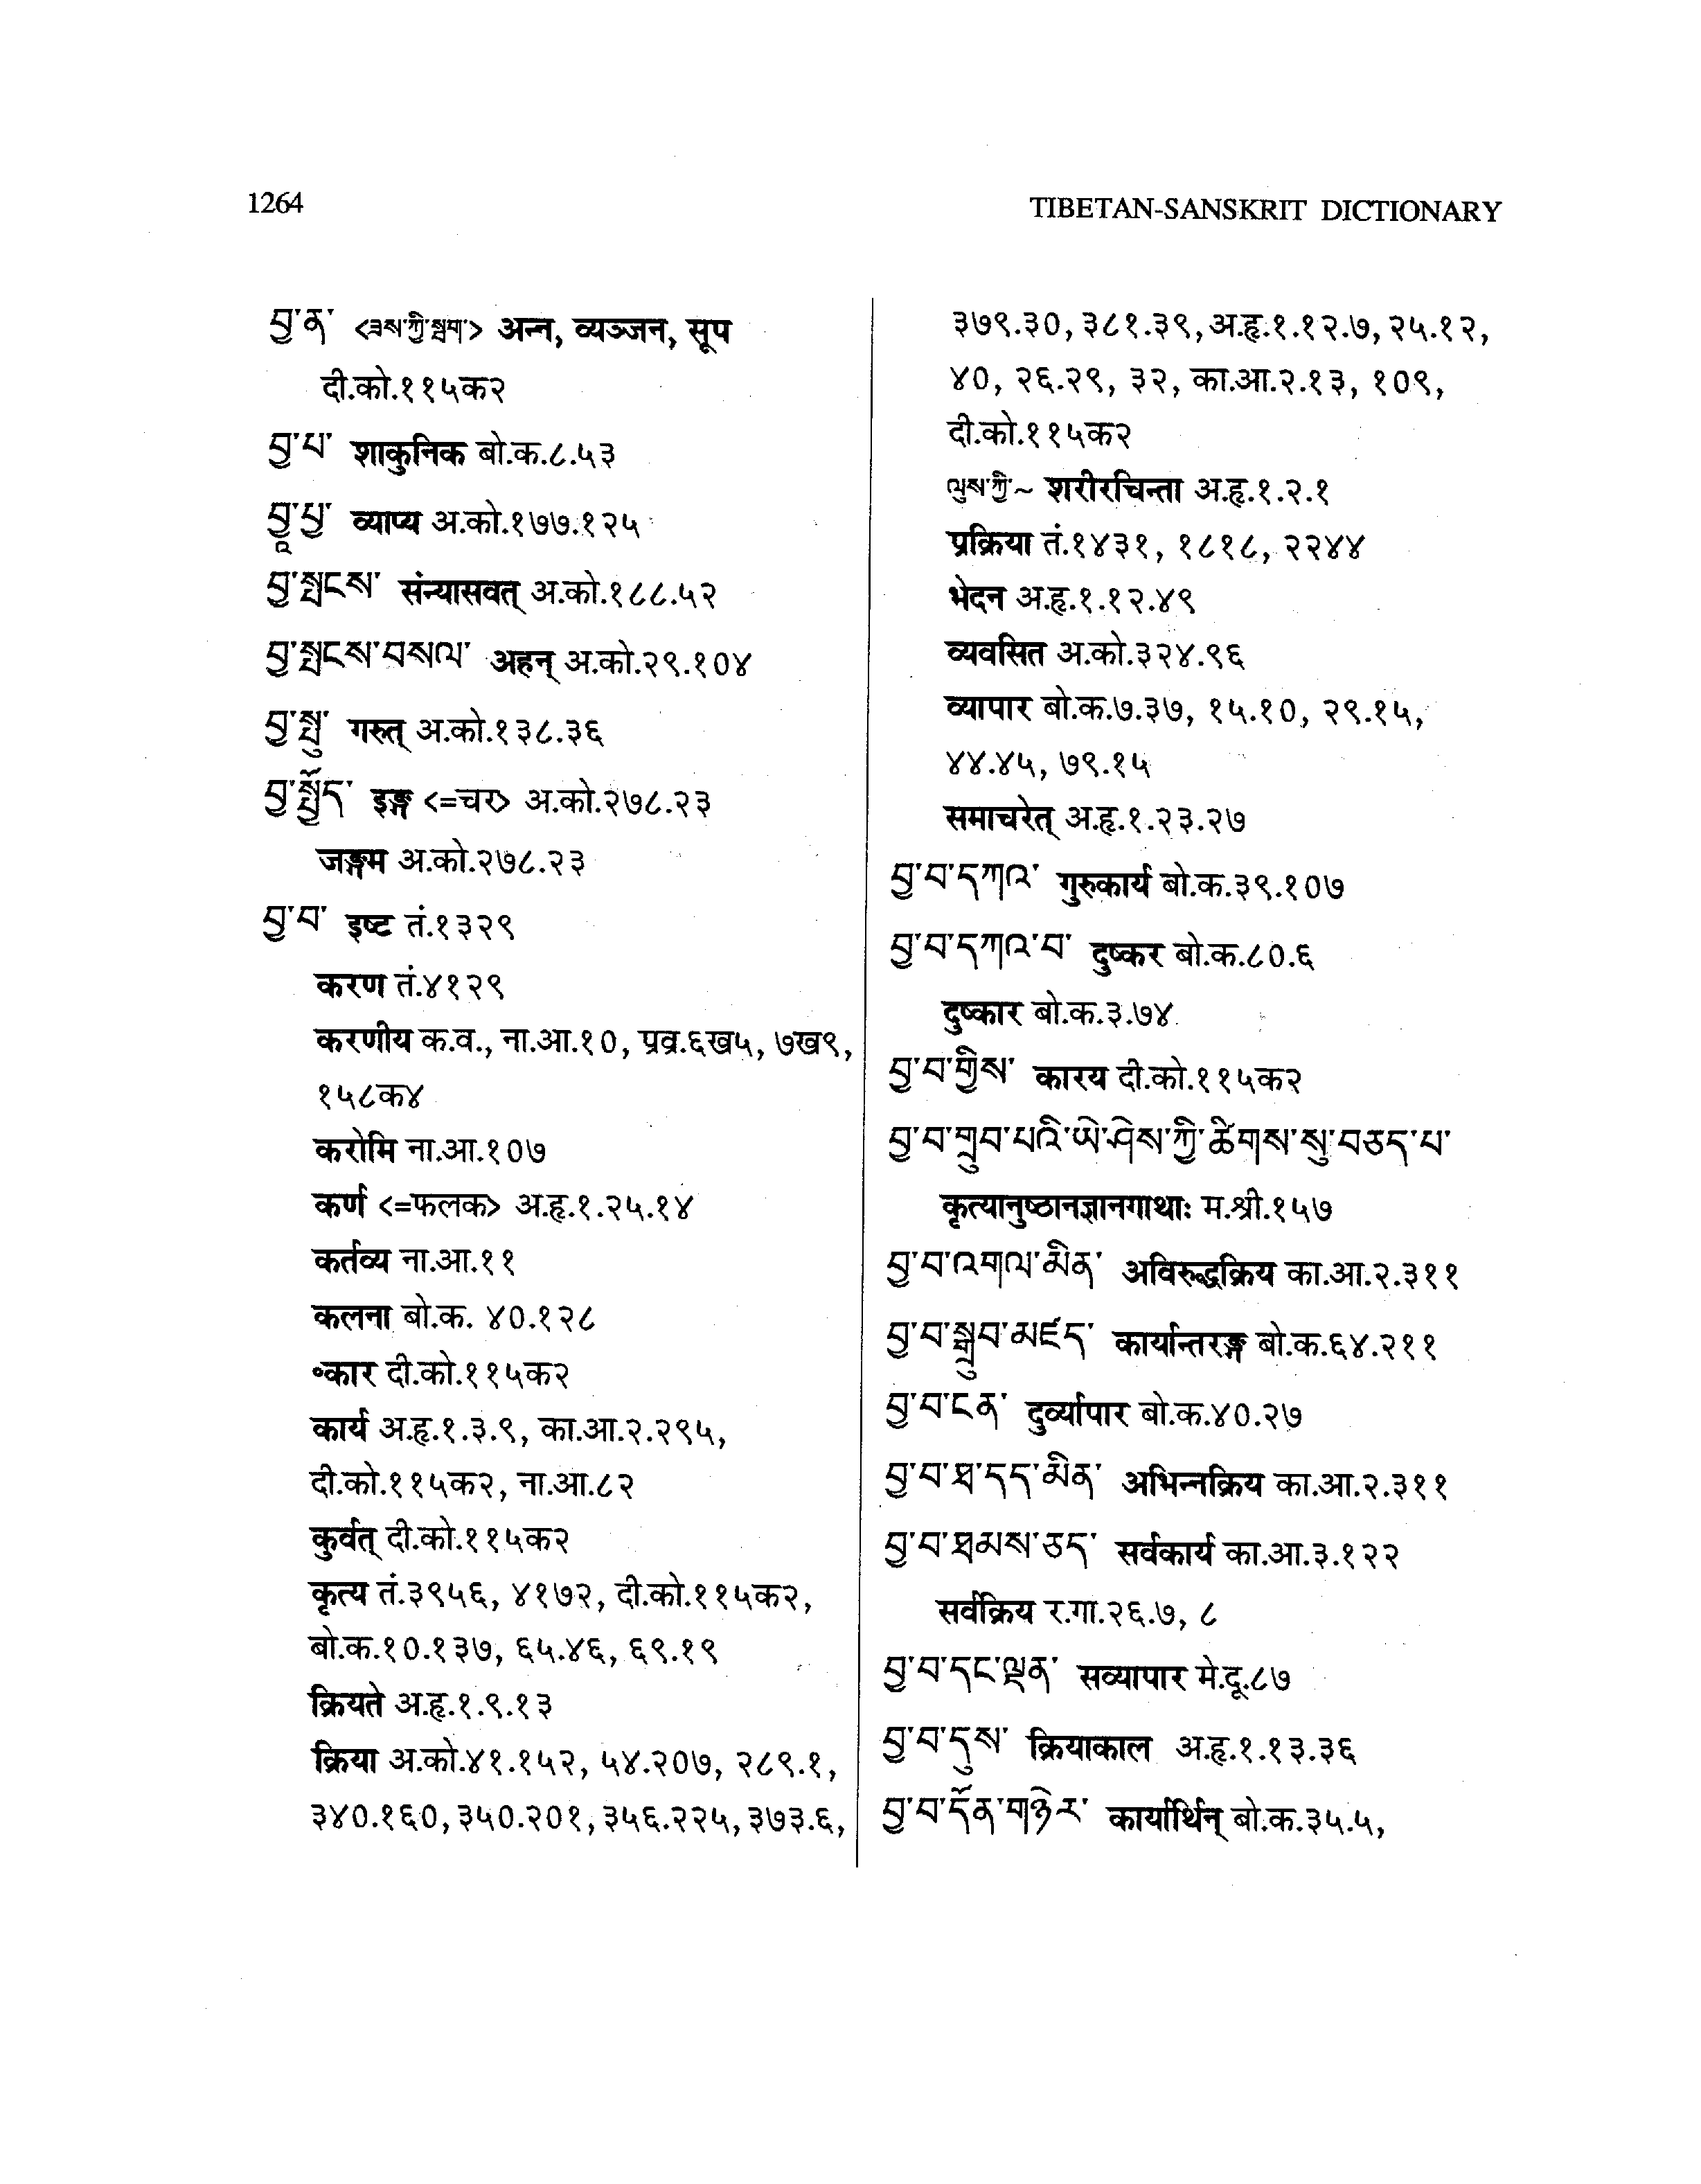 1264
TIBETAN-SANSKRIT DICTIONARY
བྱ་ན་ <ཟས་ཀྱི་སྦག་> अन्न, व्यञ्जन, सूप
दी.को.११५क२
བྱ་པ་ शाकुनिक बो.क.८.५३
བྱཱ་པྱ་ व्याप्य अ.को.१७७.१२५
བྱ་སྤྲངས་ संन्यासवत् अ.को.१८८.५२
བྱ་སྤྲངས་བསལ་ अहन् अ.को.२९.१०४
བྱ་སྤུ་ गरुत् अ.को.१३८.३६
བྱ་སྤྱོད་ इङ्ग <=चर> अ.को.२७८.२३
जङ्गम अ.को.२७८.२३
བྱ་བ་ इष्ट तं.१३२९
करण तं.४१२९
करणीय क.व., ना.आ.१०, प्रव्र.६ख५, ७ख९,
१५८क४
करोमि ना.आ.१०७
कर्ण <=फलक> अ.हृ.१.२५.१४
कर्तव्य ना.आ.११
कलना बो.क. ४०.१२८
॰कार दी.को.११५क२
कार्य अ.हृ.१.३.९, का.आ.२.२९५,
दी.को.११५क२, ना.आ.८२
कुर्वत् दी.को.११५क२
कृत्य तं.३९५६, ४१७२, दी.को.११५क२,
बो.क.१०.१३७, ६५.४६, ६९.१९
क्रियते अ.हृ.१.९.१३
क्रिया अ.को.४१.१५२, ५४.२०७, २८९.१,
३४०.१६०, ३५०.२०१, ३५६.२२५, ३७३.६,
३७९.३०, ३८१.३९, अ.हृ.१.१२.७, २५.१२,
४०, २६.२९, ३२, का.आ.२.१३, १०९,
दी.को.११५क२
ལུས་ཀྱི་~ शरीरचिन्ता अ.हृ.१.२.१
प्रक्रिया तं.१४३१, १८१८, २२४४
भेदन अ.हृ.१.१२.४९
व्यवसित अ.को.३२४.९६
व्यापार बो.क.७.३७, १५.१०, २९.१५,
४४.४५, ७९.१५
समाचरेत् अ.हृ.१.२३.२७
བྱ་བ་དཀའ་ गुरुकार्य बो.क.३९.१०७
བྱ་བ་དཀའ་བ་ दुष्कर बो.क.८०.६
दुष्कार बो.क.३.७४
བྱ་བ་གྱིས་ कारय दी.को.११५क२
བྱ་བ་གྲུབ་པའི་ཡེ་ཤེས་ཀྱི་ཚིགས་སུ་བཅད་པ་
कृत्यानुष्ठानज्ञानगाथाः म.श्री.१५७
བྱ་བ་འགལ་མིན་ अविरुद्धक्रिय का.आ.२.३११
བྱ་བ་སྒྲུབ་མཛད་ कार्यान्तरङ्ग बो.क.६४.२११
བྱ་བ་ངན་ दुर्व्यापार बो.क.४०.२७
བྱ་བ་ཐ་དད་མིན་ अभिन्नक्रिय का.आ.२.३११
བྱ་བ་ཐམས་ཅད་ सर्वकार्य का.आ.३.१२२
सर्वक्रिय र.गा.२६.७, ८
བྱ་བ་དང་ལྡན་ सव्यापार मे.दू.८७
བྱ་བ་དུས་ क्रियाकाल अ.हृ.१.१३.३६
བྱ་བ་དོན་གཉེར་ कार्यार्थिन् बो.क.३५.५,